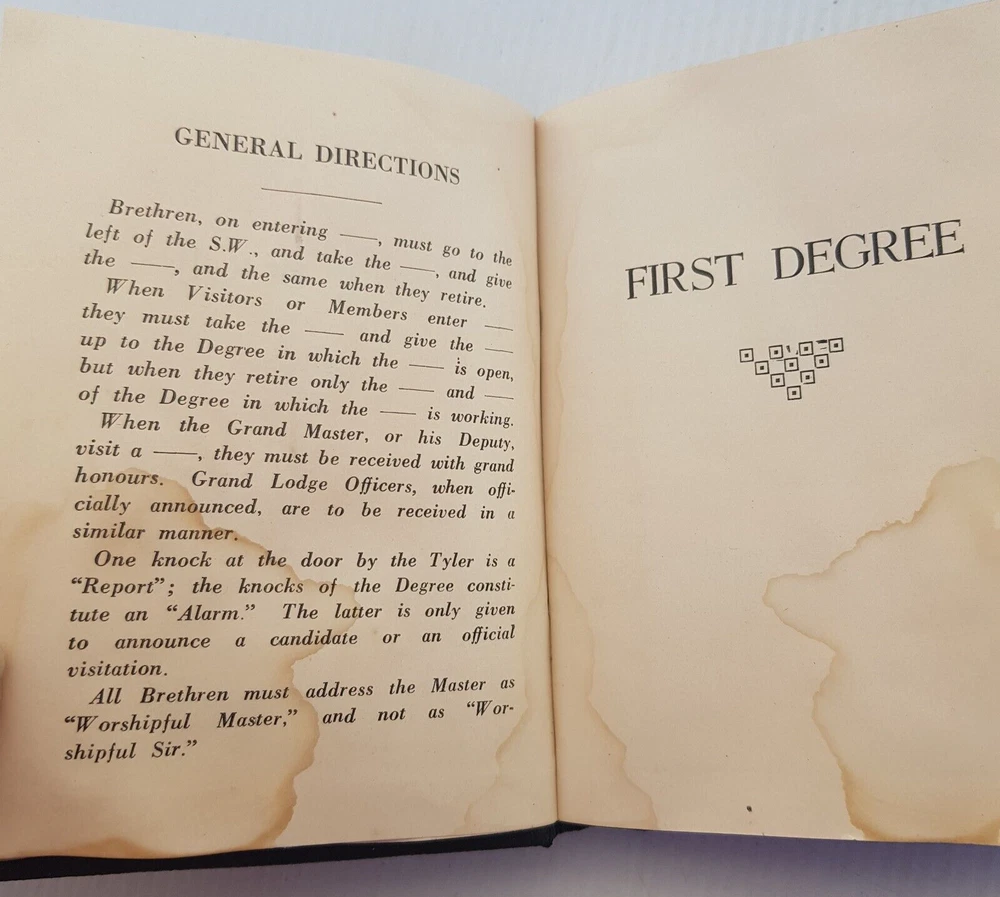 GENERAL DIRECTIONS
Brethren, on entering ——, must go to the
left of the S.W., and take the ——, and give
the ——, and the same when they retire.
When Visitors or Members enter ——
they must take the —— and give the ——
up to the Degree in which the —— is open,
but when they retire only the —— and ——
of the Degree in which the —— is working.
When the Grand Master, or his Deputy,
visit a ——, they must be received with grand
honours. Grand Lodge Officers, when offi-
cially announced, are to be received in a
similar manner.
One knock at the door by the Tyler is a
“Report”; the knocks of the Degree consti-
tute an “Alarm.” The latter is only given
to announce a candidate or an official
visitation.
All Brethren must address the Master as
“Worshipful Master,” and not as “Wor-
shipful Sir.”
FIRST DEGREE